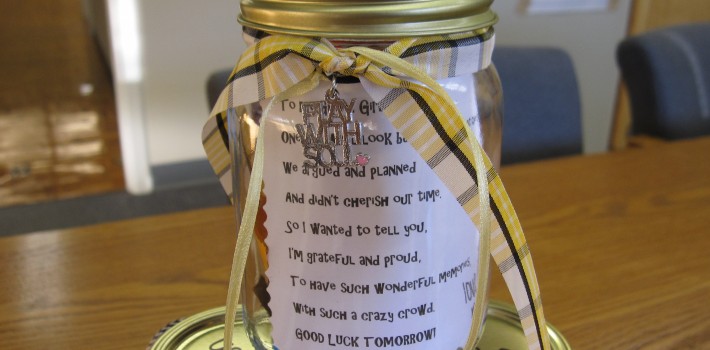 To
PLAY
WITH
SOUL
One Look
We argued and planned
And didn't cherish our time.
So I wanted to tell you,
I'm grateful and proud,
To have such wonderful memories
With such a crazy crowd.
GOOD LUCK TOMORROW!